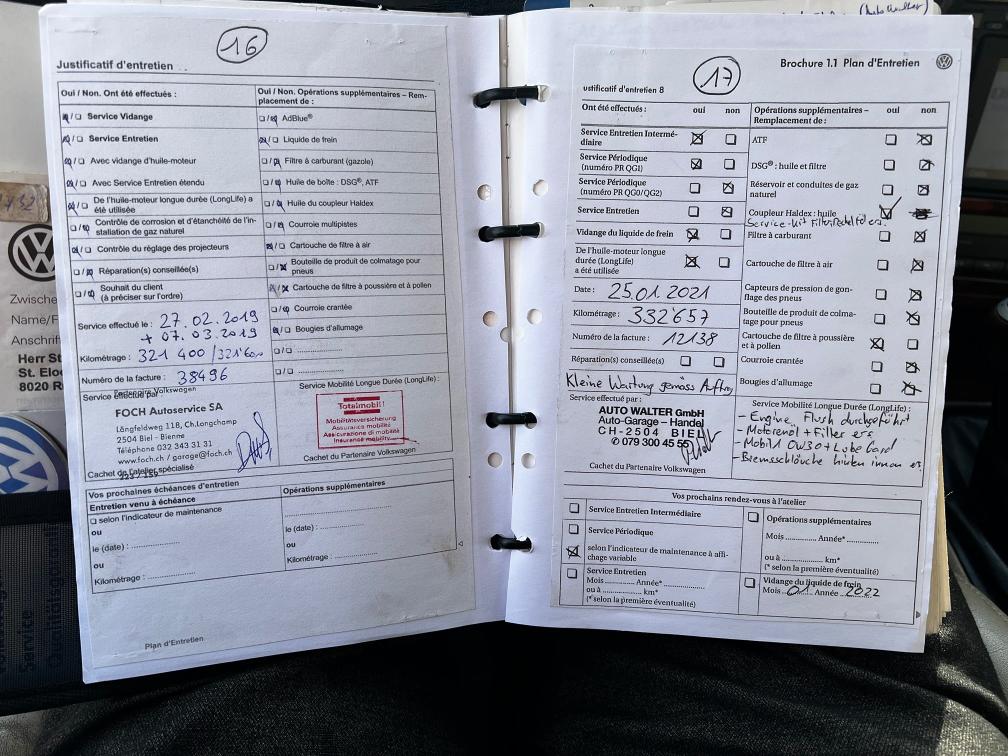 16
Justificatif d'entretien
Oui / Non. Ont été effectués :
Service Vidange
Service Entretien
Avec vidange d'huile-moteur
Avec Service Entretien étendu
De l'huile-moteur longue durée (LongLife) a
été utilisée
Contrôle de corrosion et d'étanchéité de l'in-
stallation de gaz naturel
Contrôle du réglage des projecteurs
Réparation(s) conseillée(s)
Souhait du client
(à préciser sur l'ordre)
Service effectué le : 27.02.2019
+ 07.03.2019
Kilométrage : 321 400 / 321'600
Numéro de la facture : 38496
Service effectué par
Partenaire Volkswagen
FOCH Autoservice SA
Längfeldweg 118, Ch.Longchamp
2504 Biel - Bienne
Téléphone 032 343 31 31
www.foch.ch / garage@foch.ch
Cachet de l'atelier spécialisé
Oui / Non. Opérations supplémentaires – Rem-
placement de :
AdBlue®
Liquide de frein
Filtre à carburant (gazole)
Huile de boîte : DSG®, ATF
Huile du coupleur Haldex
Courroie multipistes
Cartouche de filtre à air
Bouteille de produit de colmatage pour
pneus
Cartouche de filtre à poussière et à pollen
Courroie crantée
Bougies d'allumage
Service Mobilité Longue Durée (LongLife) :
Totalmobil!
Mobilitätsversicherung
Assurance mobilité
Assicurazione di mobilità
Insurance mobility
Cachet du Partenaire Volkswagen
Vos prochaines échéances d'entretien
Entretien venu à échéance
selon l'indicateur de maintenance
ou
le (date) :
ou
Kilométrage :
Opérations supplémentaires
le (date) :
ou
Kilométrage :
Plan d'Entretien
17
Brochure 1.1 Plan d'Entretien
ustificatif d'entretien 8
Ont été effectués : oui non
Service Entretien Intermé-
diaire
Service Périodique
(numéro PR QG1)
Service Périodique
(numéro PR QG0/QG2)
Service Entretien
Vidange du liquide de frein
De l'huile-moteur longue
durée (LongLife)
a été utilisée
Date : 25.01.2021
Kilométrage : 332'657
Numéro de la facture : 12138
Réparation(s) conseillée(s)
Kleine Wartung gemäss Auftrag
Service effectué par :
AUTO WALTER GmbH
Auto-Garage – Handel
CH-2504 BIEL
079 300 45 55
Cachet du Partenaire Volkswagen
Opérations supplémentaires – oui non
Remplacement de :
ATF
DSG® : huile et filtre
Réservoir et conduites de gaz
naturel
Coupleur Haldex : huile
Filtre à carburant
Cartouche de filtre à air
Capteurs de pression de gon-
flage des pneus
Bouteille de produit de colma-
tage pour pneus
Cartouche de filtre à poussière
et à pollen
Courroie crantée
Bougies d'allumage
Service Mobilité Longue Durée (LongLife) :
- Engine Flush durchgeführt
- Motorenöl + Filter ers
- Mobil 1 0W30 + Lube Gard
- Bremsschläuche hinten innen ers
Vos prochains rendez-vous à l'atelier
Service Entretien Intermédiaire
Service Périodique
selon l'indicateur de maintenance à affi-
chage variable
Service Entretien
Mois Année*
ou à km*
(*selon la première éventualité)
Opérations supplémentaires
Mois Année*
ou à km*
(*selon la première éventualité)
Vidange du liquide de frein
Mois 01 Année 2022
Zwische
Name/F
Anschrif
Herr St
St. Eloe
8020 R
Service